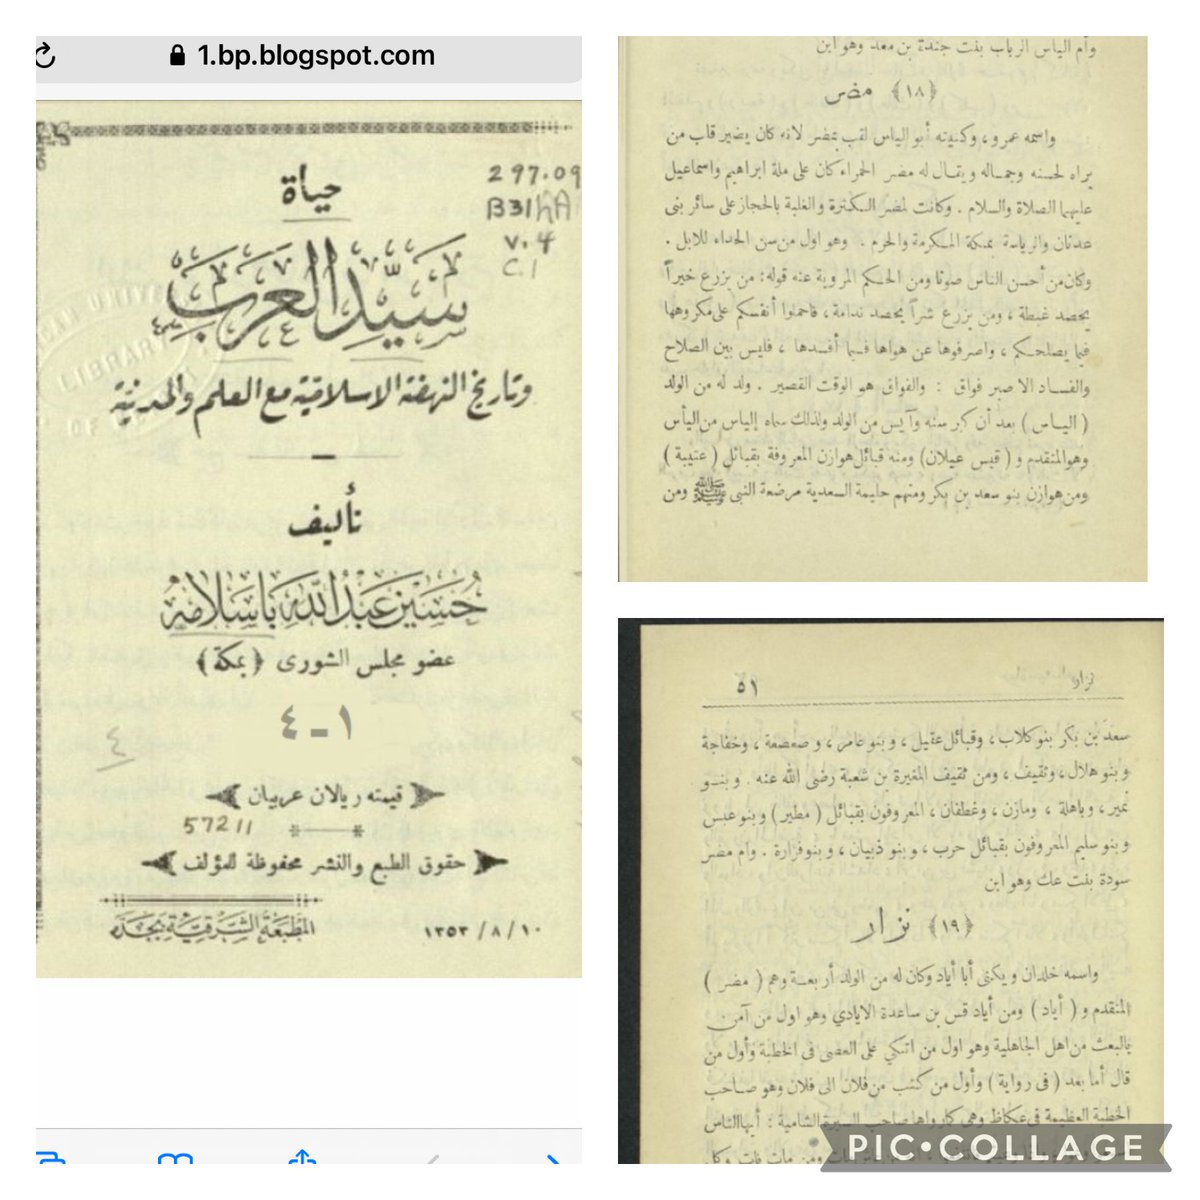 1.bp.blogspot.com
297.09
B31hA
v. 4
c. 1
حياة
سيد العرب
وتاريخ النهضة الاسلامية مع العلم والمدنية
تأليف
حسين عبد الله باسلامه
عضو مجلس الشورى ﴿بمكة﴾
١ - ٤
٤
قيمته ريالان عربيان
57211
حقوق الطبع والنشر محفوظة للمؤلف
المطبعة الشرقية بجدة
١٠ / ٨ / ١٣٥٣
وأم الياس الرباب بنت جندة بن معد وهو ابن
﴿١٨﴾ مضر
واسمه عمرو، وكنيته أبو الياس لقب بمضر لانه كان يضير قلب من
يراه لحسنه وجماله ويقال له مضر الحمراء كان على ملة ابراهيم واسماعيل
عليهما الصلاة والسلام . وكانت لمضر الكثرة والغلبة بالحجاز على سائر بنى
عدنان والرياسة بمكة المكرمة والحرم . وهو اول من سن الحداء للابل .
وكان من أحسن الناس صوتا ومن الحكم المروية عنه قوله: من يزرع خيراً
يحصد غبطة ، ومن يزرع شراً يحصد ندامة، فاحملوا أنفسكم على مكروهها
فيما يصلحكم ، واصرفوها عن هواها فيما أفسدها ، فليس بين الصلاح
والفساد الا صبر فواق : والفواق هو الوقت القصير . ولد له من الولد
( الياس ) بعد أن كبر سنه وآيس من الولد ولذلك سماه إلياس من اليأس
وهو المتقدم و ( قيس عيلان) ومنه قبائل هوازن المعروفة بقبائل ( عتيبة )
ومن هوازن بنو سعد بن بكر ومنهم حليمة السعدية مرضعة النبى ﷺ ومن
نزار
٥١
سعد بن بكر بنو كلاب، وقبائل عقيل، وبنو عامر، وصعصعة، وخفاجة
وبنو هلال، وثقيف، ومن ثقيف المغيرة بن شعبة رضى الله عنه . وبنو
نمير، وباهلة ، ومازن، وغطفان، المعروفون بقبائل ( مطير ) وبنو عبس
وبنو سليم المعروفون بقبائل حرب، وبنو ذبيان، وبنو فزارة . وام مضر
سودة بنت عك وهو ابن
﴿١٩﴾ نزار
واسمه خلدان ويكنى أبا أياد وكان له من الولد أربعة وهم ( مضر )
المتقدم و ( أياد ) ومن أياد قس بن ساعدة الايادي وهو اول من آمن
بالبعث من اهل الجاهلية وهو اول من اتكي على العصى فى الخطبة وأول من
قال أما بعد ( فى رواية ) وأول من كتب من فلان الى فلان وهو صاحب
الخطبة العظيمة فى عكاظ وهي كما رواها صاحب السيرة الشامية : أيها الناس
ومن مات فات وكل
PIC•COLLAGE